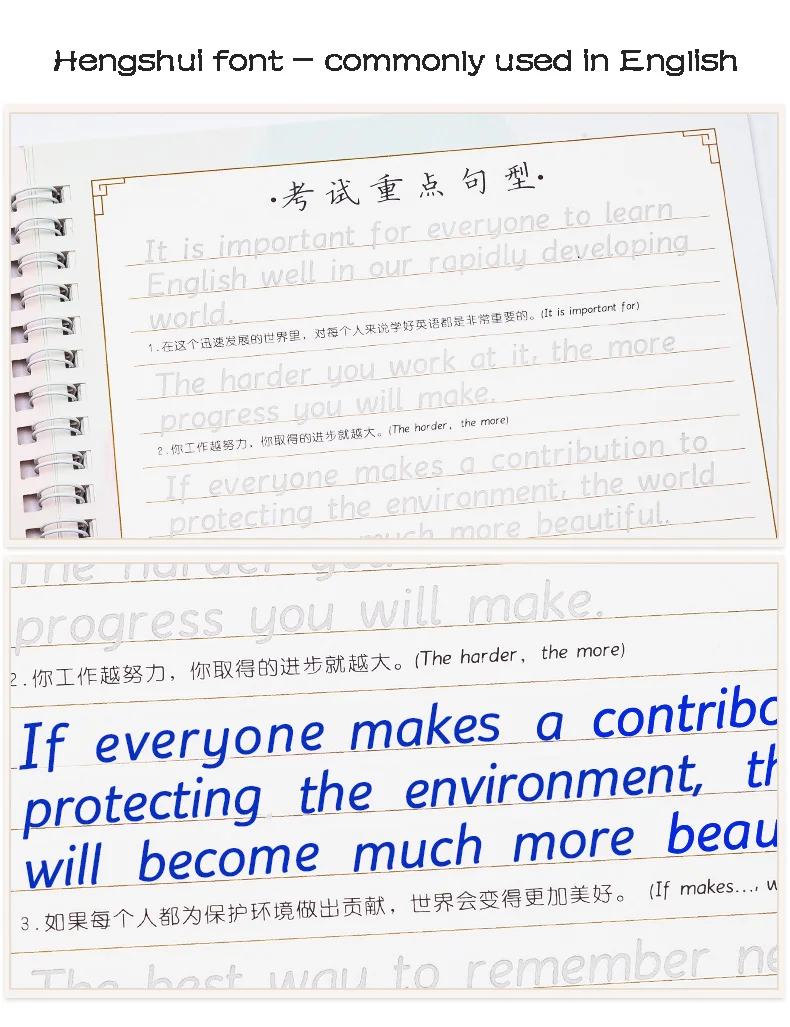 Hengshui font – commonly used in English
·考试重点句型·
It is important for everyone to learn
English well in our rapidly developing
world.
1.在这个迅速发展的世界里，对每个人来说学好英语都是非常重要的。(It is important for)
The harder you work at it, the more
progress you will make.
2.你工作越努力，你取得的进步就越大。(The harder, the more)
If everyone makes a contribution to
protecting the environment, the world
much more beautiful.
The harder you
progress you will make.
2.你工作越努力，你取得的进步就越大。(The harder, the more)
If everyone makes a contribu
protecting the environment, th
will become much more beau
3.如果每个人都为保护环境做出贡献，世界会变得更加美好。 (If makes..., w
The best way to remember ne